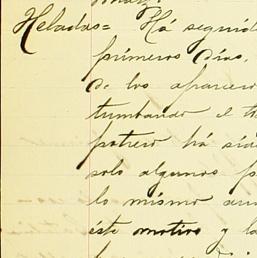 Heladas = Há seguid
primeros dias,
de los aparcero
tumbando el t
potrero há sid
solo algunos p
lo mismo
éste motivo y l